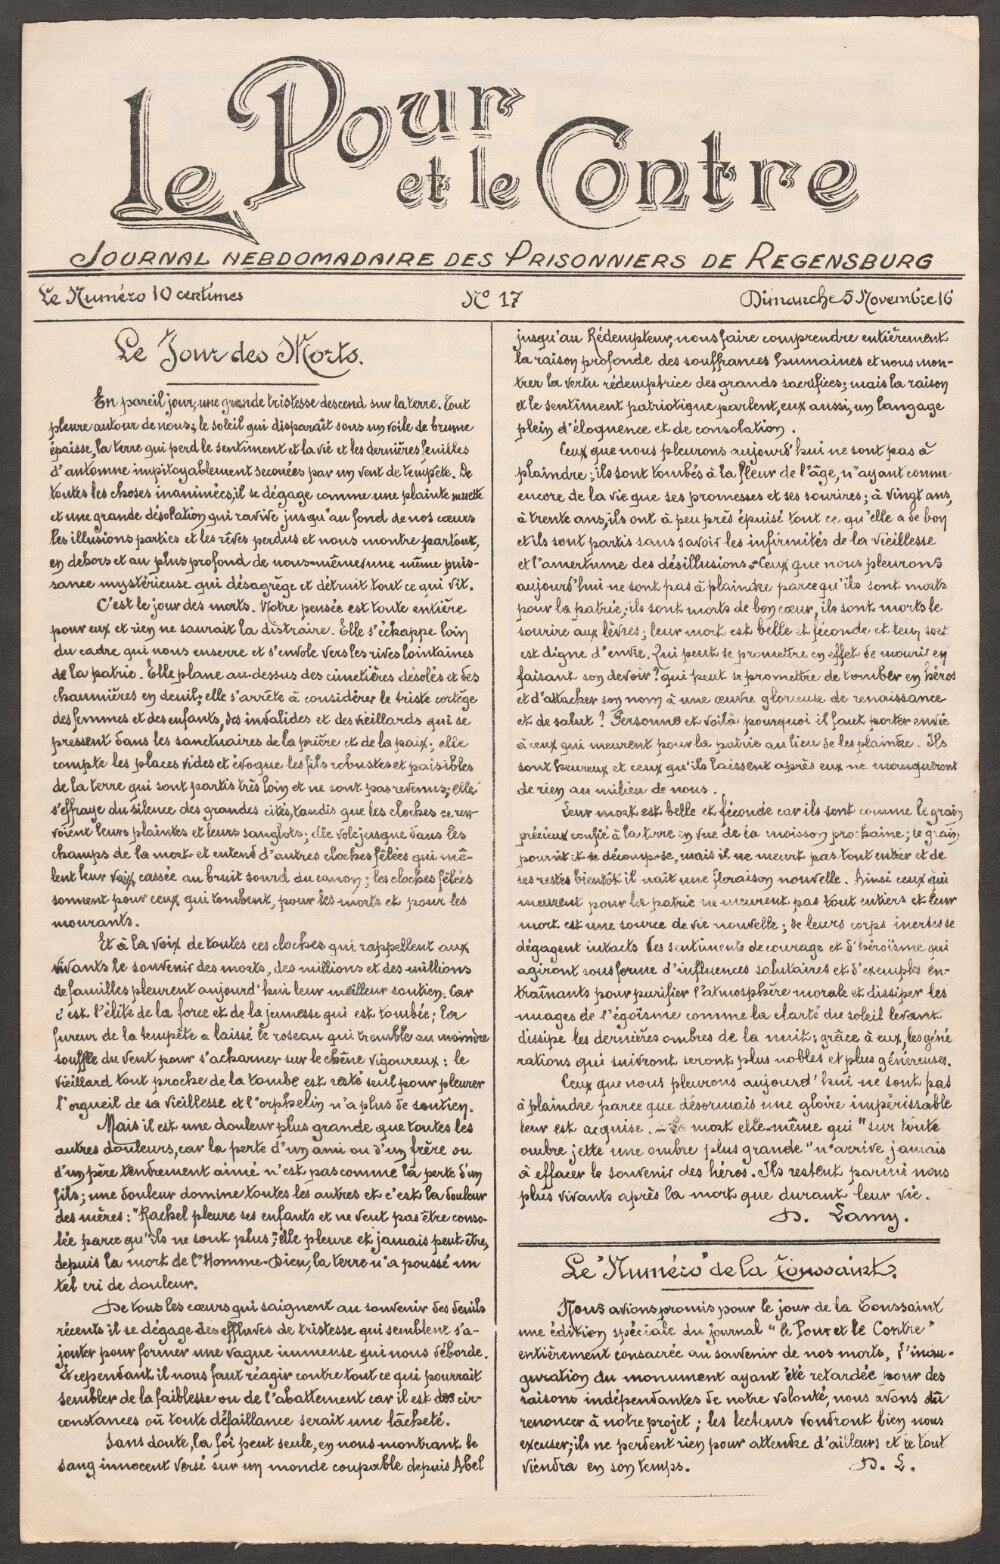 Le Pour
et le Contre
Journal hebdomadaire des Prisonniers de Regensburg
Le Numéro 10 centimes
No 17
Dimanche 5 Novembre 16
Le Jour des Morts.
En pareil jour, une grande tristesse descend sur la terre. Tout
pleure autour de nous; le soleil qui disparaît sous un voile de brume
épaisse, la terre qui perd le sentiment et la vie et les dernières feuilles
d'automne impitoyablement secouées par un vent de tempête. De
toutes les choses inanimées, il se dégage comme une plainte muette
et une grande désolation qui ravive jusqu'au fond de nos cœurs
les illusions parties et les rêves perdus et nous montre partout,
en dehors et au plus profond de nous-mêmes une même puis-
sance mystérieuse qui désagrège et détruit tout ce qui vit.
C'est le jour des morts. Notre pensée est toute entière
pour eux et rien ne saurait la distraire. Elle s'échappe loin
du cadre qui nous enserre et s'envole vers les rives lointaines
de la patrie. Elle plane au-dessus des cimetières désolés et des
chaumières en deuil; elle s'arrête à considérer le triste cortège
des femmes et des enfants, des invalides et des vieillards qui se
pressent dans les sanctuaires de la prière et de la paix; elle
compte les places vides et évoque les fils robustes et paisibles
de la terre qui sont partis très loin et ne sont pas revenus; elle
s'effraye du silence des grandes cités, tandis que les cloches se ren-
voient leurs plaintes et leurs sanglots; elle vole jusque dans les
champs de la mort et entend d'autres cloches fêlées qui mê-
lent leur voix cassée au bruit sourd du canon; les cloches fêlées
sonnent pour ceux qui tombent, pour les morts et pour les
mourants.
Et à la voix de toutes ces cloches qui rappellent aux
vivants le souvenir des morts, des millions et des millions
de familles pleurent aujourd'hui leur meilleur soutien. Car
c'est l'élite de la force et de la jeunesse qui est tombée; la
fureur de la tempête a laissé le roseau qui tremble au moindre
souffle du vent pour s'acharner sur le chêne vigoureux: le
vieillard tout proche de la tombe est resté seul pour pleurer
l'orgueil de sa vieillesse et l'orphelin n'a plus de soutien.
Mais il est une douleur plus grande que toutes les
autres douleurs, car la perte d'un ami ou d'un frère ou
d'un père tendrement aimé n'est pas comme la perte d'un
fils; une douleur domine toutes les autres et c'est la douleur
des mères: "Rachel pleure ses enfants et ne veut pas être conso-
lée parce qu'ils ne sont plus"; elle pleure et jamais peut-être,
depuis la mort de l'Homme-Dieu, la terre n'a poussé un
tel cri de douleur.
De tous les cœurs qui saignent au souvenir des deuils
récents il se dégage des effluves de tristesse qui semblent s'a-
jouter pour former une vague immense qui nous déborde.
Et cependant il nous faut réagir contre tout ce qui pourrait
sembler de la faiblesse ou de l'abattement car il est des cir-
constances où toute défaillance serait une lâcheté.
Sans doute, la foi peut seule, en nous montrant le
sang innocent versé sur un monde coupable depuis Abel
jusqu'au Rédempteur, nous faire comprendre entièrement
la raison profonde des souffrances humaines et nous mon-
trer la vertu rédemptrice des grands sacrifices; mais la raison
et le sentiment patriotique parlent, eux aussi, un langage
plein d'éloquence et de consolation.
Ceux que nous pleurons aujourd'hui ne sont pas à
plaindre; ils sont tombés à la fleur de l'âge, n'ayant connu
encore de la vie que ses promesses et ses sourires; à vingt ans,
à trente ans, ils ont à peu près épuisé tout ce qu'elle a de bon
et ils sont partis sans savoir les infirmités de la vieillesse
et l'amertume des désillusions. Ceux que nous pleurons
aujourd'hui ne sont pas à plaindre parce qu'ils sont morts
pour la patrie; ils sont morts de bon cœur, ils sont morts le
sourire aux lèvres; leur mort est belle et féconde et leur sort
est digne d'envie. Qui peut se promettre en effet de mourir en
faisant son devoir? qui peut se promettre de tomber en héros
et d'attacher son nom à une œuvre glorieuse de renaissance
et de salut? Personne et voilà pourquoi il faut porter envie
à ceux qui meurent pour la patrie au lieu de les plaindre. Ils
sont heureux et ceux qu'ils laissent après eux ne manqueront
de rien au milieu de nous.
Leur mort est belle et féconde car ils sont comme le grain
précieux confié à la terre en vue de la moisson prochaine; le grain
pourrit et se décompose, mais il ne meurt pas tout entier et de
ses restes bientôt il naît une floraison nouvelle. Ainsi ceux qui
meurent pour la patrie ne meurent pas tout entiers et leur
mort est une source de vie nouvelle; de leurs corps inertes se
dégagent intacts des sentiments de courage et d'héroïsme qui
agiront sous forme d'influences salutaires et d'exemples en-
traînants pour purifier l'atmosphère morale et dissiper les
nuages de l'égoïsme comme la clarté du soleil levant
dissipe les dernières ombres de la nuit; grâce à eux, les géné
rations qui suivront seront plus nobles et plus généreuses.
Ceux que nous pleurons aujourd'hui ne sont pas
à plaindre parce que désormais une gloire impérissable
leur est acquise. La mort elle-même qui "sur toute
ombre jette une ombre plus grande" n'arrive jamais
à effacer le souvenir des héros. Ils restent parmi nous
plus vivants après la mort que durant leur vie.
D. Lamy.
Le "Numéro" de la Toussaint.
Nous avions promis pour le jour de la Toussaint
une édition spéciale du journal "le Pour et le Contre"
entièrement consacrée au souvenir de nos morts, l'inau-
guration du monument ayant été retardée pour des
raisons indépendantes de notre volonté, nous avons dû
renoncer à notre projet; les lecteurs voudront bien nous
excuser; ils ne perdent rien pour attendre d'ailleurs et le tout
viendra en son temps.
D. L.